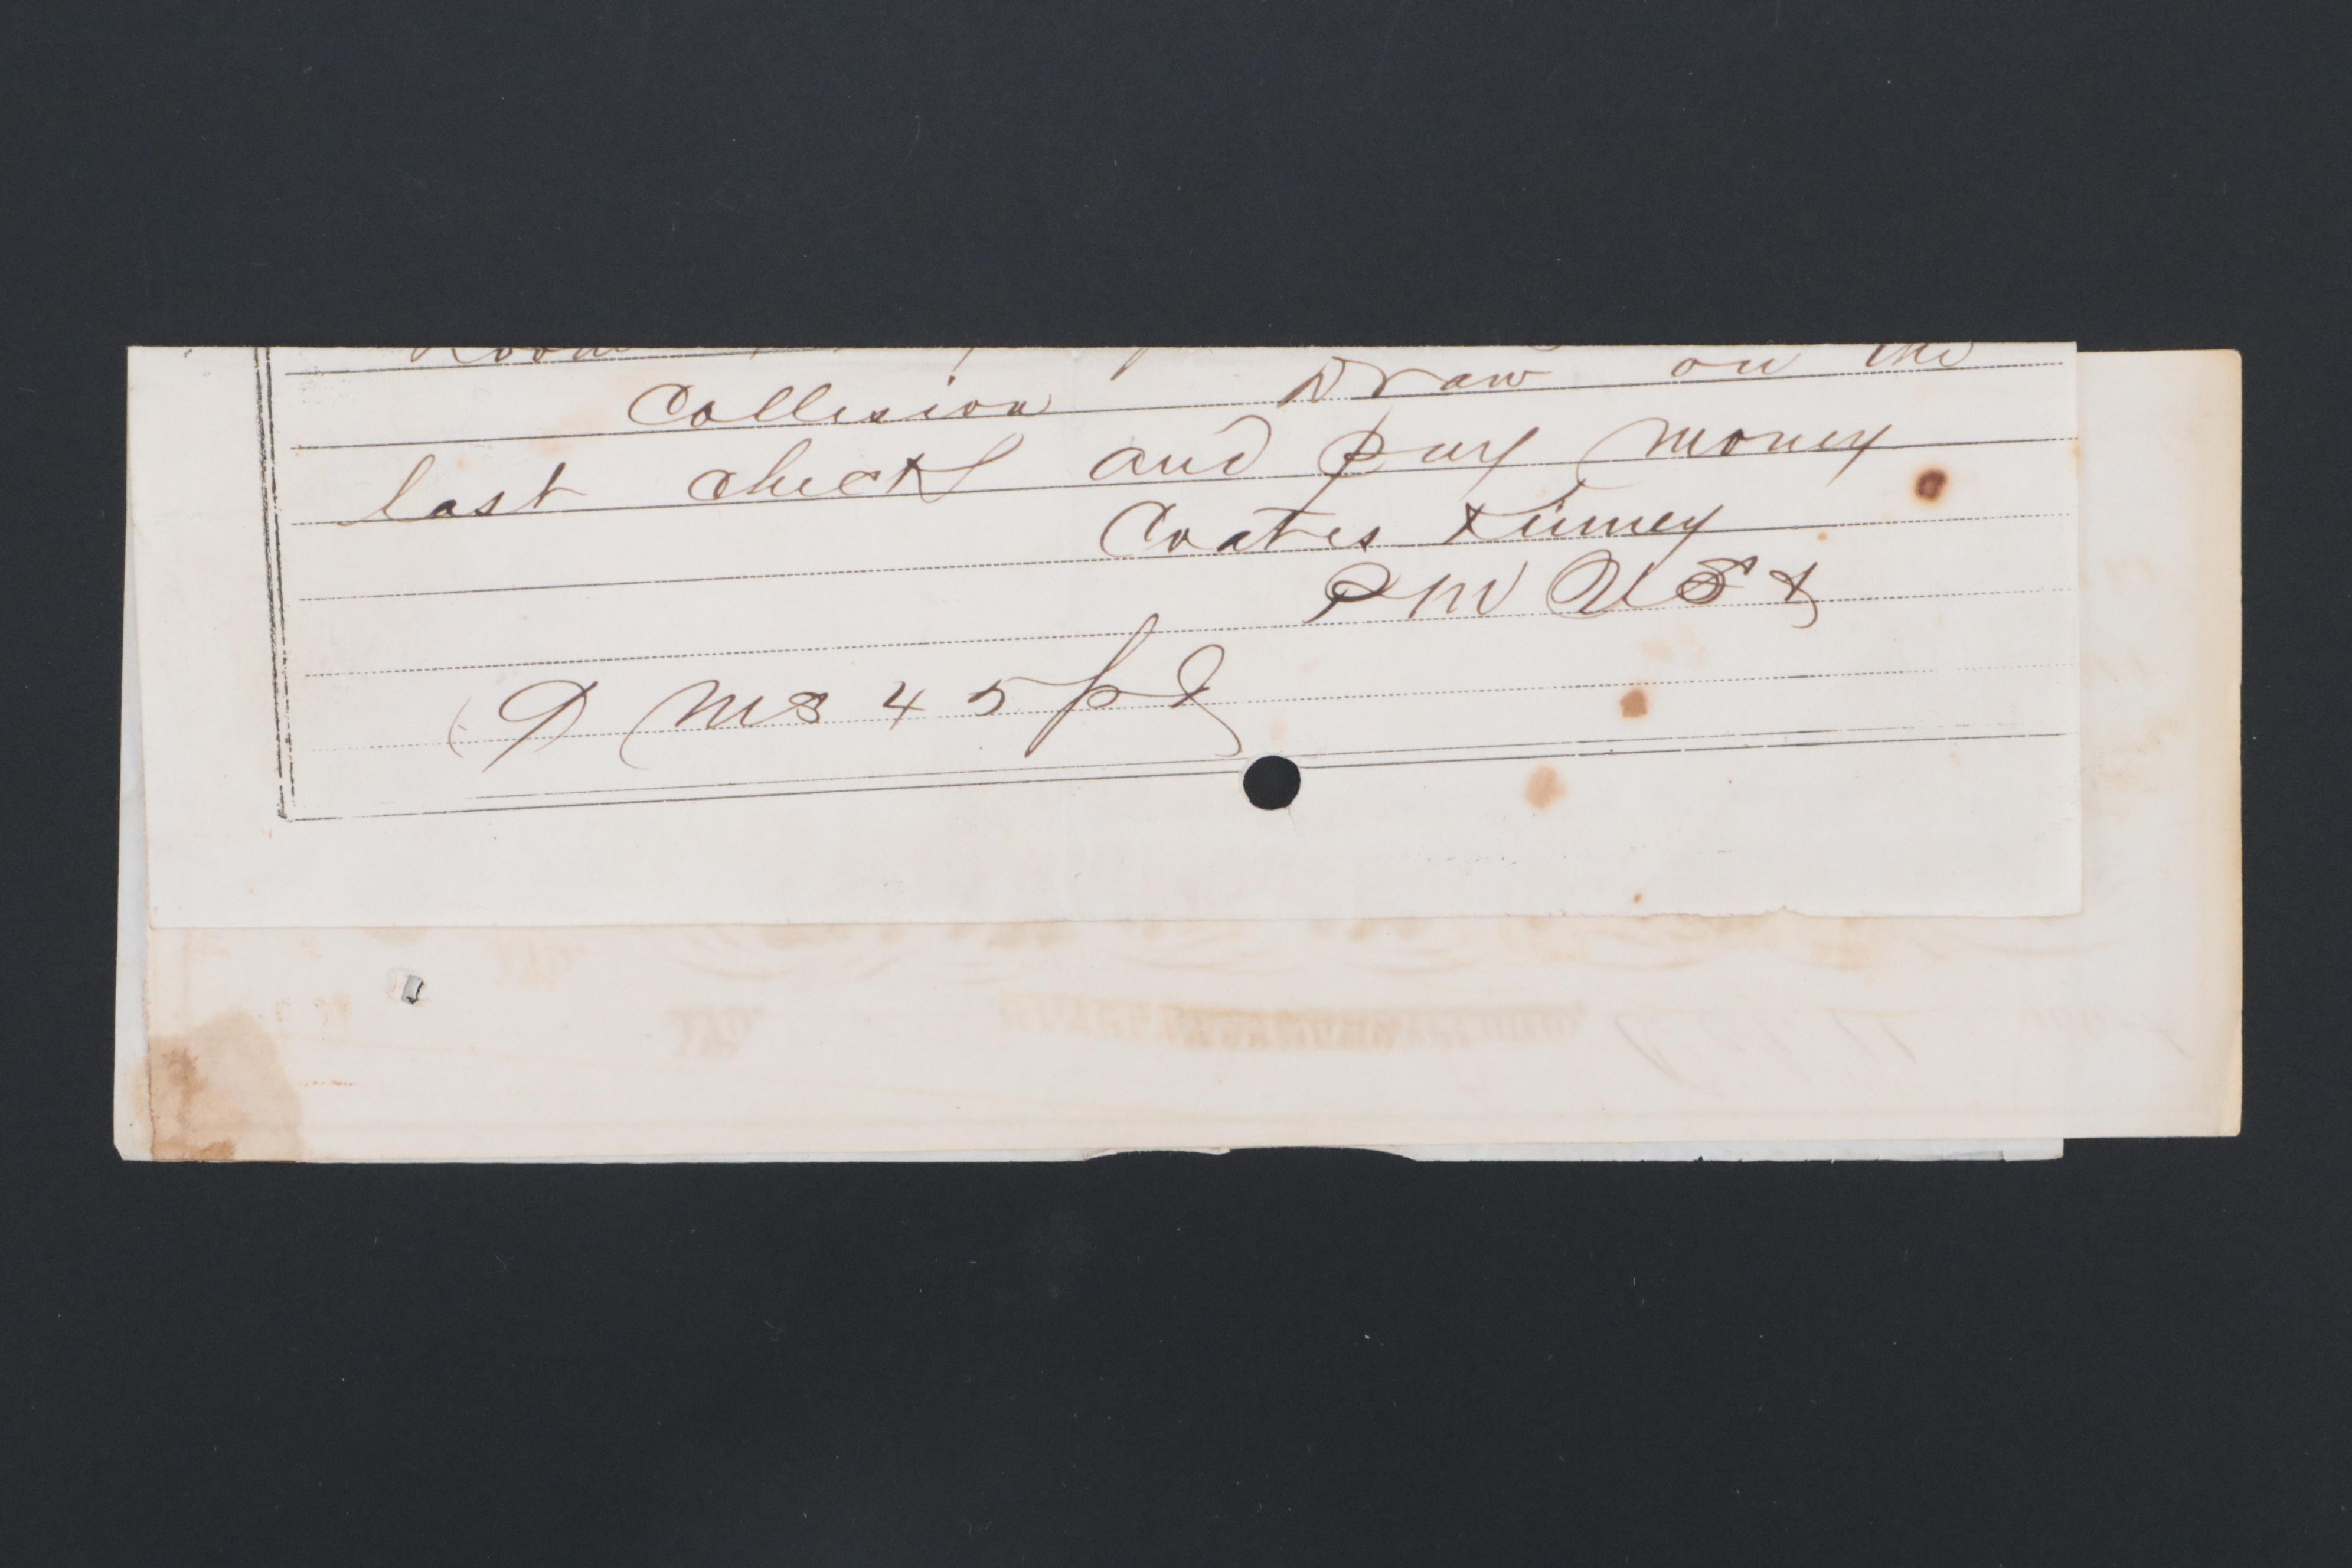 Collision Draw on the
last check and pay money
Coates Kinney
P M U S A
D M S 45 pd